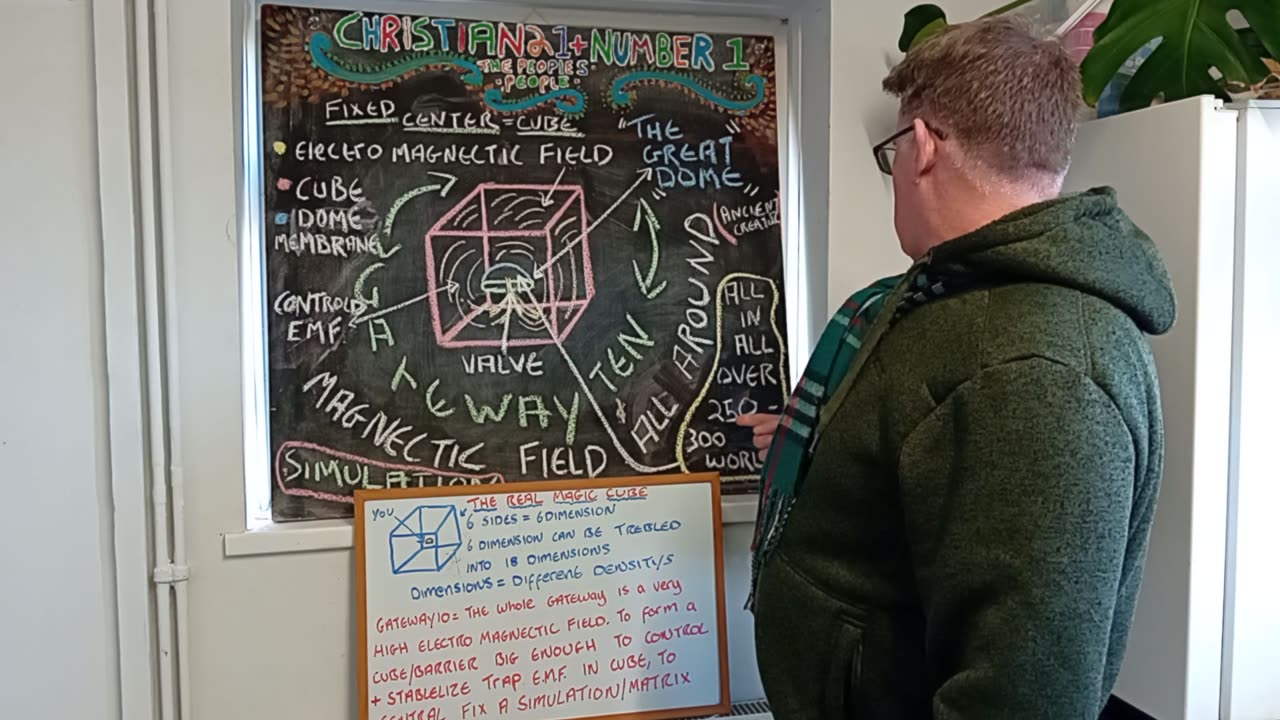 CHRISTIAN21+NUMBER 1
THE PEOPLES
PEOPLE
FIXED CENTER = CUBE
• ElEcto MAGNECTIC FIELD
• CUBE
• DOME
MEMBRANE
CONTROLD
EMF.
"THE
GREAT
DOME"
(ANCIENT
VALVE
GATEWAY TEN
MAGNECTIC FIELD
ALL AROUND
SIMULATION
ALL
IN
ALL
OVER
250-
300
WORL
THE REAL MAGIC CUBE
YOU
6 SIDES = 6 DIMENSION
6 DIMENSION CAN BE TREBLED
INTO 18 DIMENSIONS
DIMENSIONS = DIFFERENT DENSITI/S
GATEWAY10 = THE WHOLE GATEWAY IS A VERY
HIGH ELECTRO MAGNECTIC FIELD. TO FORM A
CUBE/BARRIER BIG ENOUGH TO CONTROL
+ STABLELIZE TRAP E.M.F. IN CUBE, TO
CENTRAL FIX A SIMULATION/MATRIX